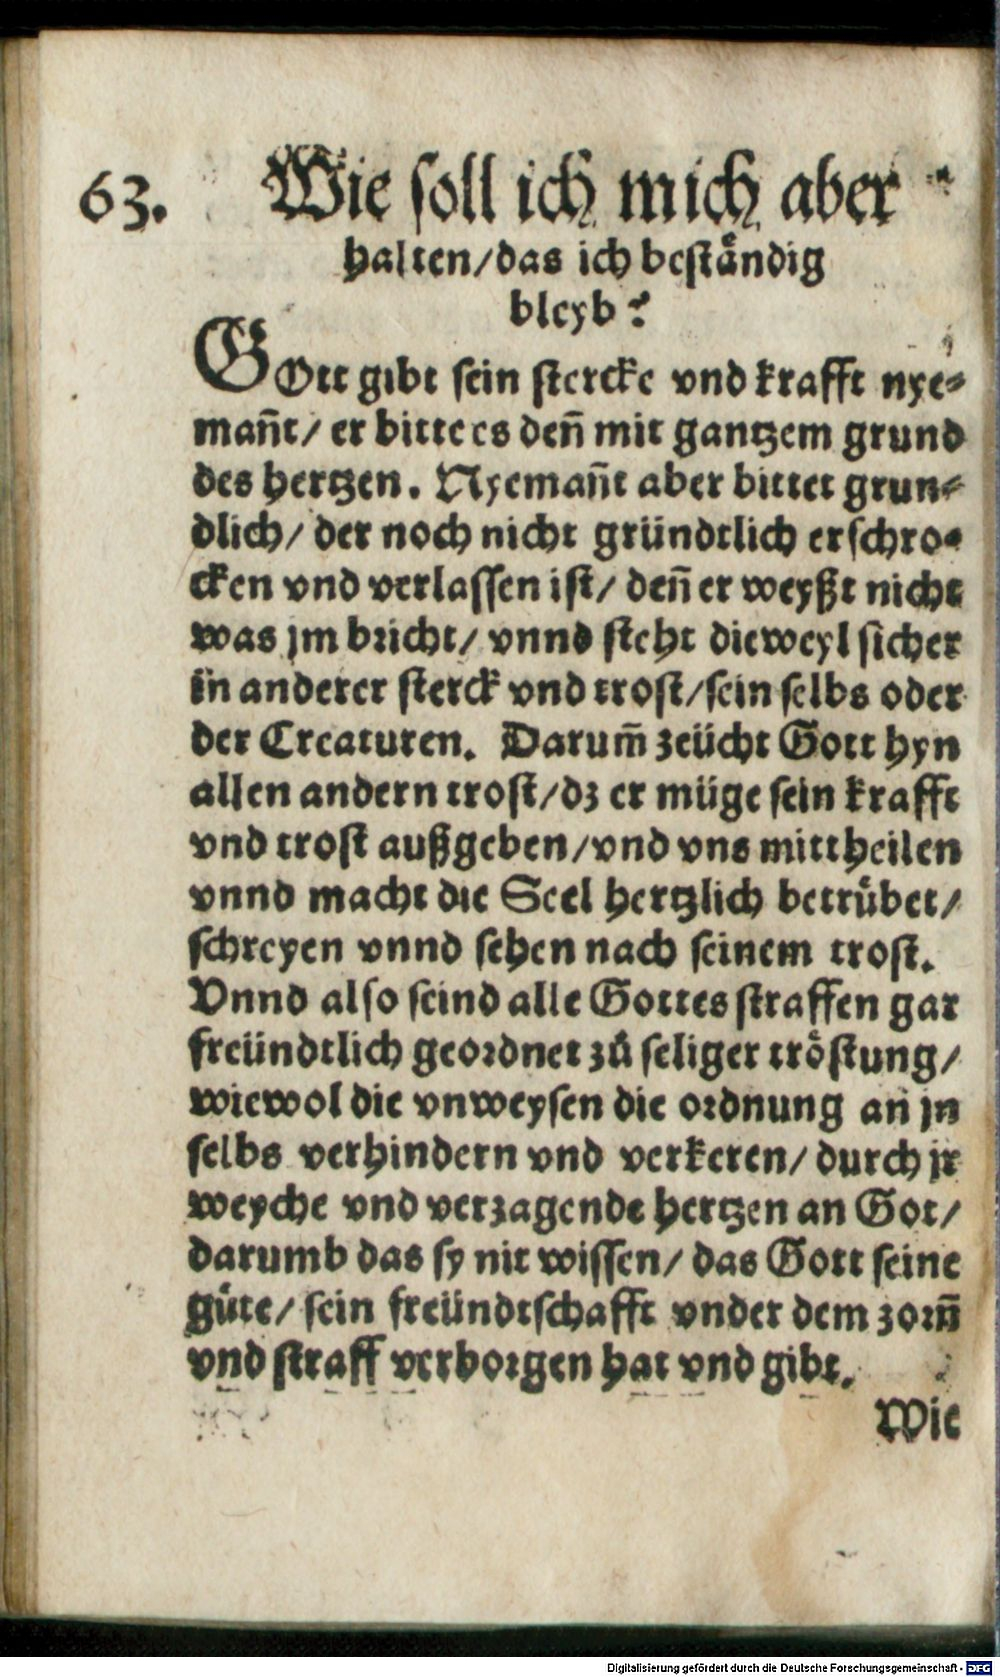 63. Wie soll ich mich aber
halten/das ich beständig
bleyb?
GOtt gibt sein stercke vnd krafft nye-
mañt/ er bitte es deñ mit gantzem grund
des hertzen. Nyemañt aber bittet grun-
dlich/ der noch nicht gründtlich erschro-
cken vnd verlassen ist/ deñ er weyßt nicht
was jm bricht/ vnnd steht dieweyl sicher
in anderer sterck vnd trost/sein selbs oder
der Creaturen. Darum̃ zeücht Gott hyn
allen andern trost/dz er müge sein krafft
vnd trost außgeben/vnd vns mittheilen
vnnd macht die Seel hertzlich betrübet/
schreyen vnnd sehen nach seinem trost.
Vnnd also seind alle Gottes straffen gar
freündtlich geordnet zů seliger tröstung/
wiewol die vnweysen die ordnung an jn
selbs verhindern vnd verkeren/ durch jr
weyche vnd verzagende hertzen an Got/
darumb das sy nit wissen/ das Gott seine
güte/ sein freündtschafft vnder dem zorñ
vnd straff verborgen hat vnd gibt.
Wie
Digitalisierung gefördert durch die Deutsche Forschungsgemeinschaft - DFG